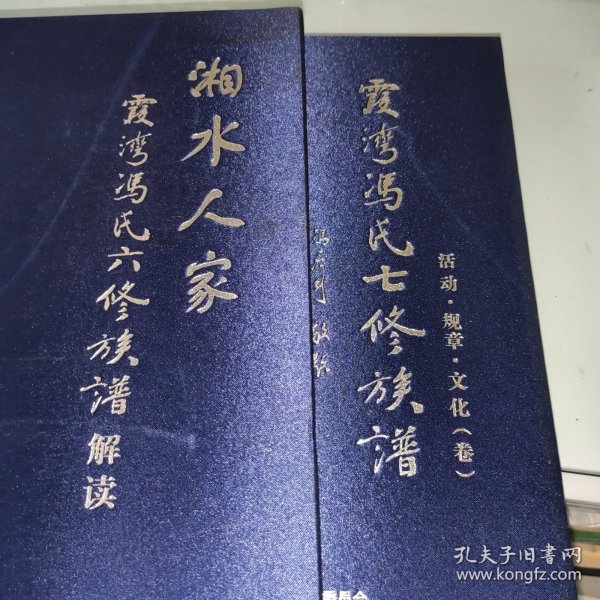 湘水人家
霞湾冯氏六修族谱解读
活动·规章·文化（卷）
霞湾冯氏七修族谱
孔夫子旧书网
www.kongfz.com